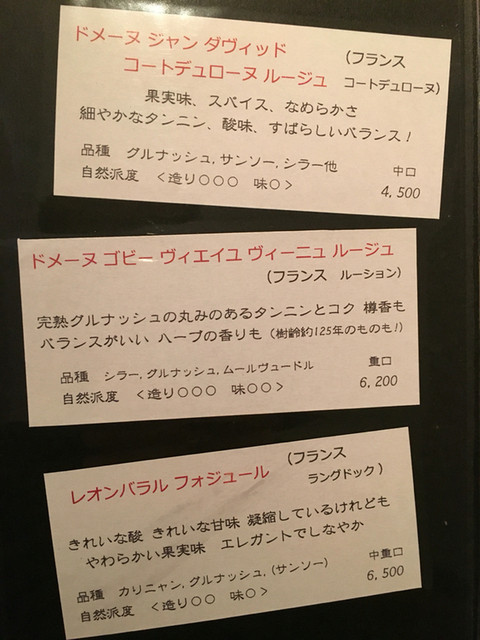 ドメーヌ ジャン ダヴィッド (フランス
コートデュローヌ ルージュ コートデュローヌ)
果実味、スパイス、なめらかさ
細やかなタンニン、酸味、すばらしいバランス!
品種 グルナッシュ,サンソー,シラー他 中口
自然派度 <造り○○○ 味○> 4,500
ドメーヌ ゴビー ヴィエイユ ヴィーニュ ルージュ
(フランス ルーション)
完熟グルナッシュの丸みのあるタンニンとコク 樽香も
バランスがいい ハーブの香りも (樹齢約125年のものも!)
品種 シラー,グルナッシュ,ムールヴュードル 重口
自然派度 <造り○○○ 味○○> 6,200
レオンバラル フォジュール (フランス
ラングドック)
きれいな酸 きれいな甘味 凝縮しているけれども
やわらかい果実味 エレガントでしなやか
品種 カリニャン,グルナッシュ,(サンソー) 中重口
自然派度 <造り○○ 味○> 6,500